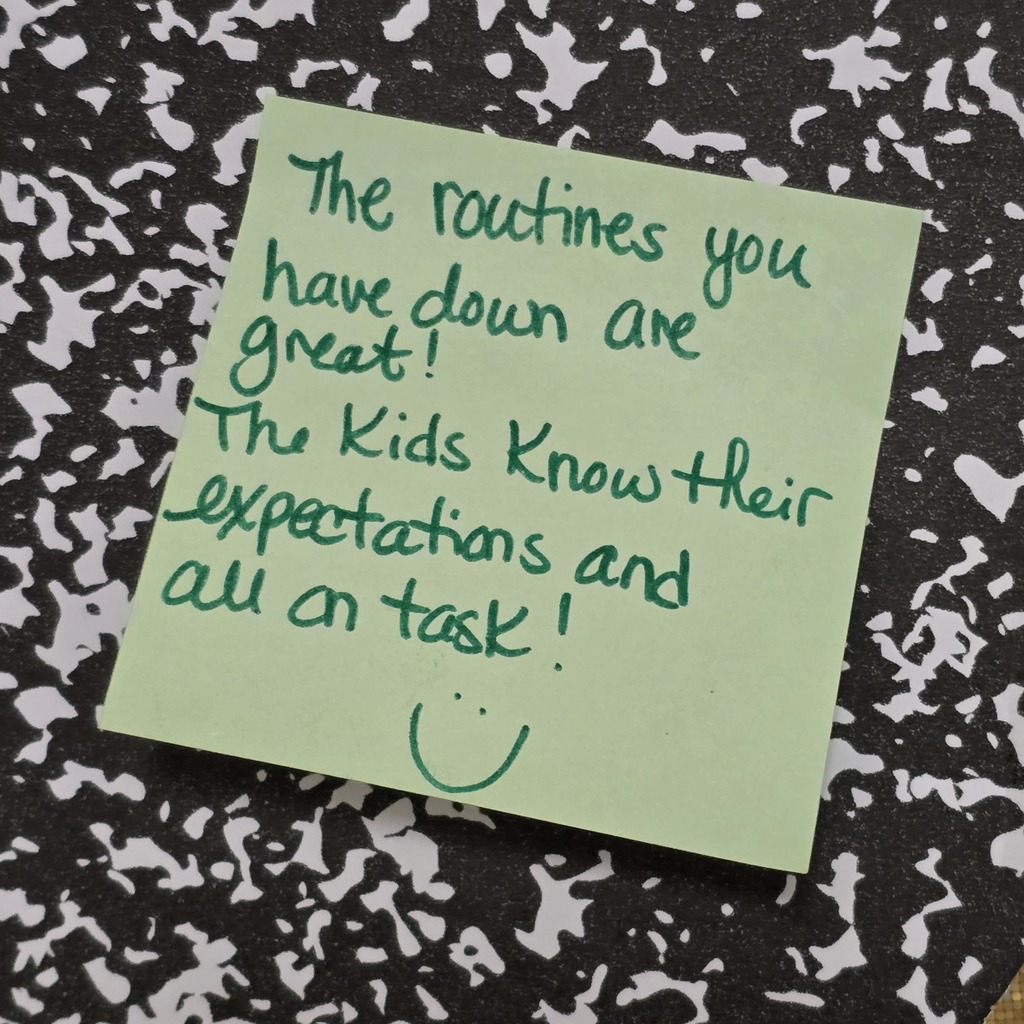 The routines you
have down are
great!
The Kids Know their
expectations and
all on task!